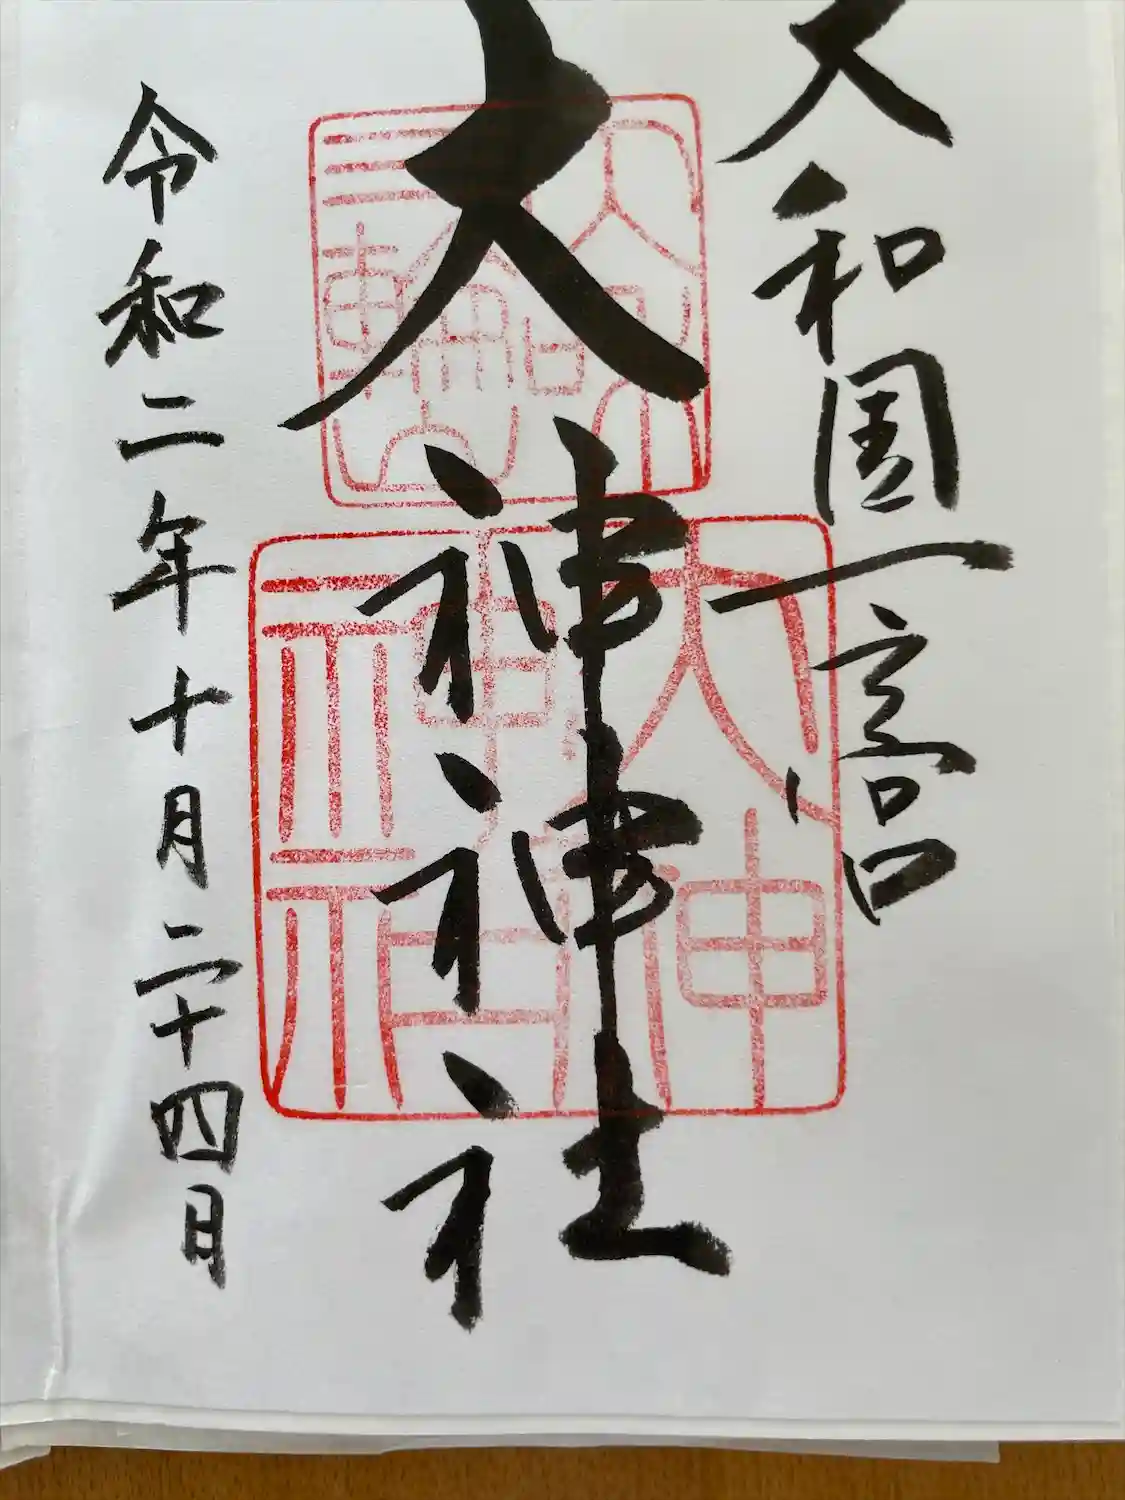 大和国一宮
大神神社
令和二年十月二十四日
大神
神社